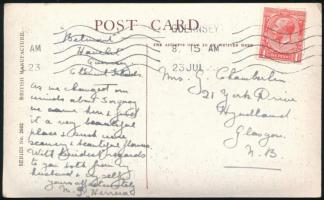 POST CARD
GUERNSEY
8. 15 AM
23 JUL
AM
23
BRITISH MANUFACTURE.
SERIES No. 2662
THE ADDRESS ONLY TO BE WRITTEN HERE
"Belmont"
Guernsey
As we changed our
minds about Sark
we came here & find
it a very beautiful
place & much more
scenery & beautiful flowers.
With kindest regards
to you both from my
husband & myself
yours affectionately
Mrs. G. Chamberlin
21 York Drive
Hyndland
Glasgow.
N.B.